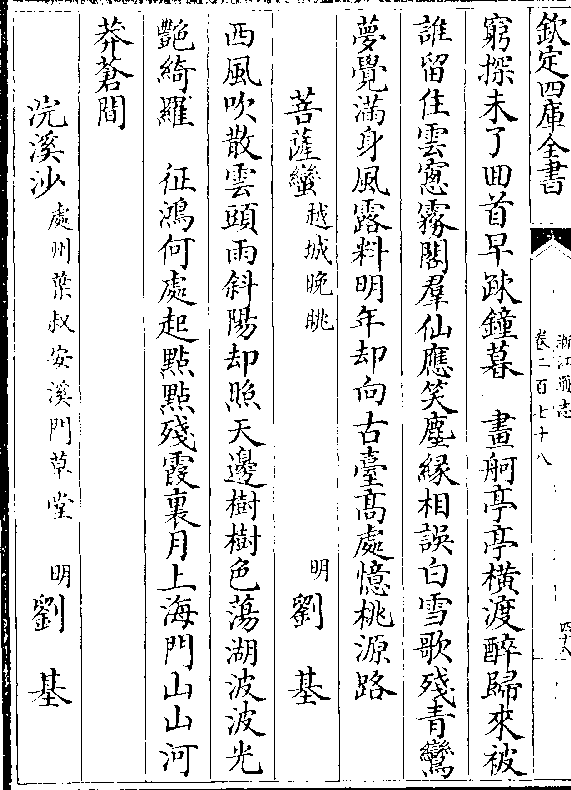 欽定四庫全書
浙江通志
卷二百七十八
四十八
窮探未了囬首早疎鐘暮　畫舸亭亭橫渡醉歸來被
誰留住雲窻霧閣羣仙應笑塵緣相誤白雪歌殘青鸞
夢覺滿身風露料明年却向古臺髙處憶桃源路
菩薩蠻　越城晚眺　明　劉基
西風吹散雲頭雨斜陽却照天邊樹樹色蕩湖波波光
艷綺羅　征鴻何處起點點殘霞裏月上海門山山河
莽蒼間
浣溪沙　處州葉叔安溪門草堂　明　劉基